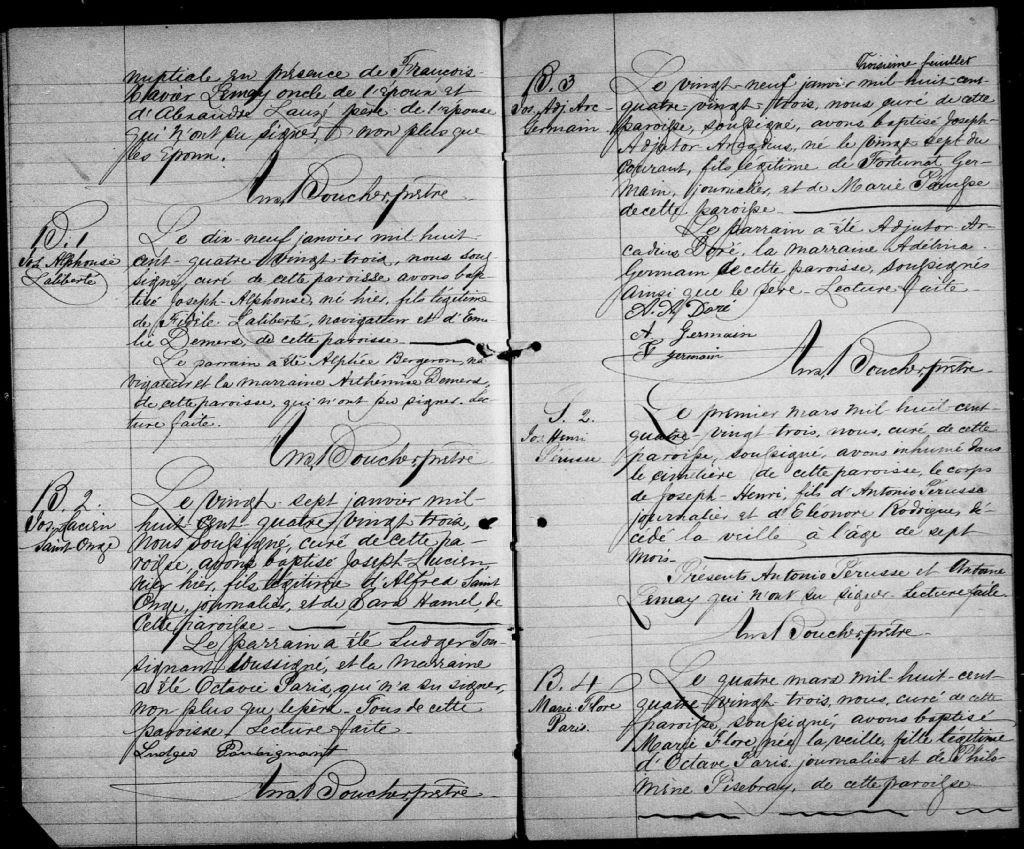 nuptiale en présence de François-
Xavier Lemay oncle de l'Epoux et
d'Alexandre Lauzé père de l'épouse
qui n'ont su signer, non plus que
les Epoux.
Boucher, ptre
B. 1
Jos. Alphonse
Laliberté
Le dix-neuf janvier mil huit-
cent-quatre vingt-trois, nous sous-
signé, curé de cette paroisse avons bap-
tisé Joseph-Alphonse, né hier, fils légitime
de Fidèle Laliberté, navigateur et d'Emé-
lie Demers, de cette paroisse
Le parrain a été Alphée Bergeron, na-
vigateur et la marraine Arthémise Demers,
de cette paroisse, qui n'ont su signer. Lec-
ture faite.
Boucher, ptre
B. 2.
Jos. Lucien
Saint-Onge
Le vingt-sept janvier mil-
huit-cent quatre vingt trois,
nous soussigné, curé de cette pa-
roisse, avons baptisé Joseph Lucien,
né hier, fils légitime d'Alfred Saint
Onge, journalier, et de Sara Hamel de
cette paroisse.
Le parrain a été Ludger Tou-
signant soussigné, et la marraine
a été Octavie Paris, qui n'a su signer,
non plus que le père. Tous de cette
paroisse. Lecture faite
Ludger Tousignant
Boucher, ptre
Troisième feuillet
B. 3
Jos. Adj. Arc.
Germain
Le vingt-neuf janvier mil-huit-cent-
quatre-vingt-trois, nous curé de cette
paroisse, soussigné, avons baptisé Joseph-
Adjutor Arcadius, né le vingt sept du
courant, fils légitime de Fortunat Ger-
main, journalier, et de Marie
de cette paroisse
Le parrain a été Adjutor Ar-
cadius Doré, la marraine Adélina
Germain de cette paroisse, soussignés
ainsi que le père. Lecture faite
A. A. Doré
A. Germain
F germain
Boucher, ptre
S. 2.
Jos Henri
Pérusse
Le premier mars mil huit-cent-
quatre-vingt trois, nous, curé de cette
paroisse, soussigné, avons inhumé dans
le cimetière de cette paroisse, le corps
de Joseph-Henri, fils d'Antonio Pérusse
journalier et d'Eléonore Rodrigue, dé-
cédé la veille à l'âge de sept
mois.
Présents Antonio Pérusse et Antoine
Lemay qui n'ont su signer Lecture faite
Boucher, ptre
B. 4
Marie Flore
Paris.
Le quatre mars mil-huit-cent-
quatre-vingt trois, nous, curé de cette
paroisse, soussigné, avons baptisé
Marie Flore née la veille, fille légitime
d'Octave Paris, journalier et de Philo-
mène, de cette paroisse